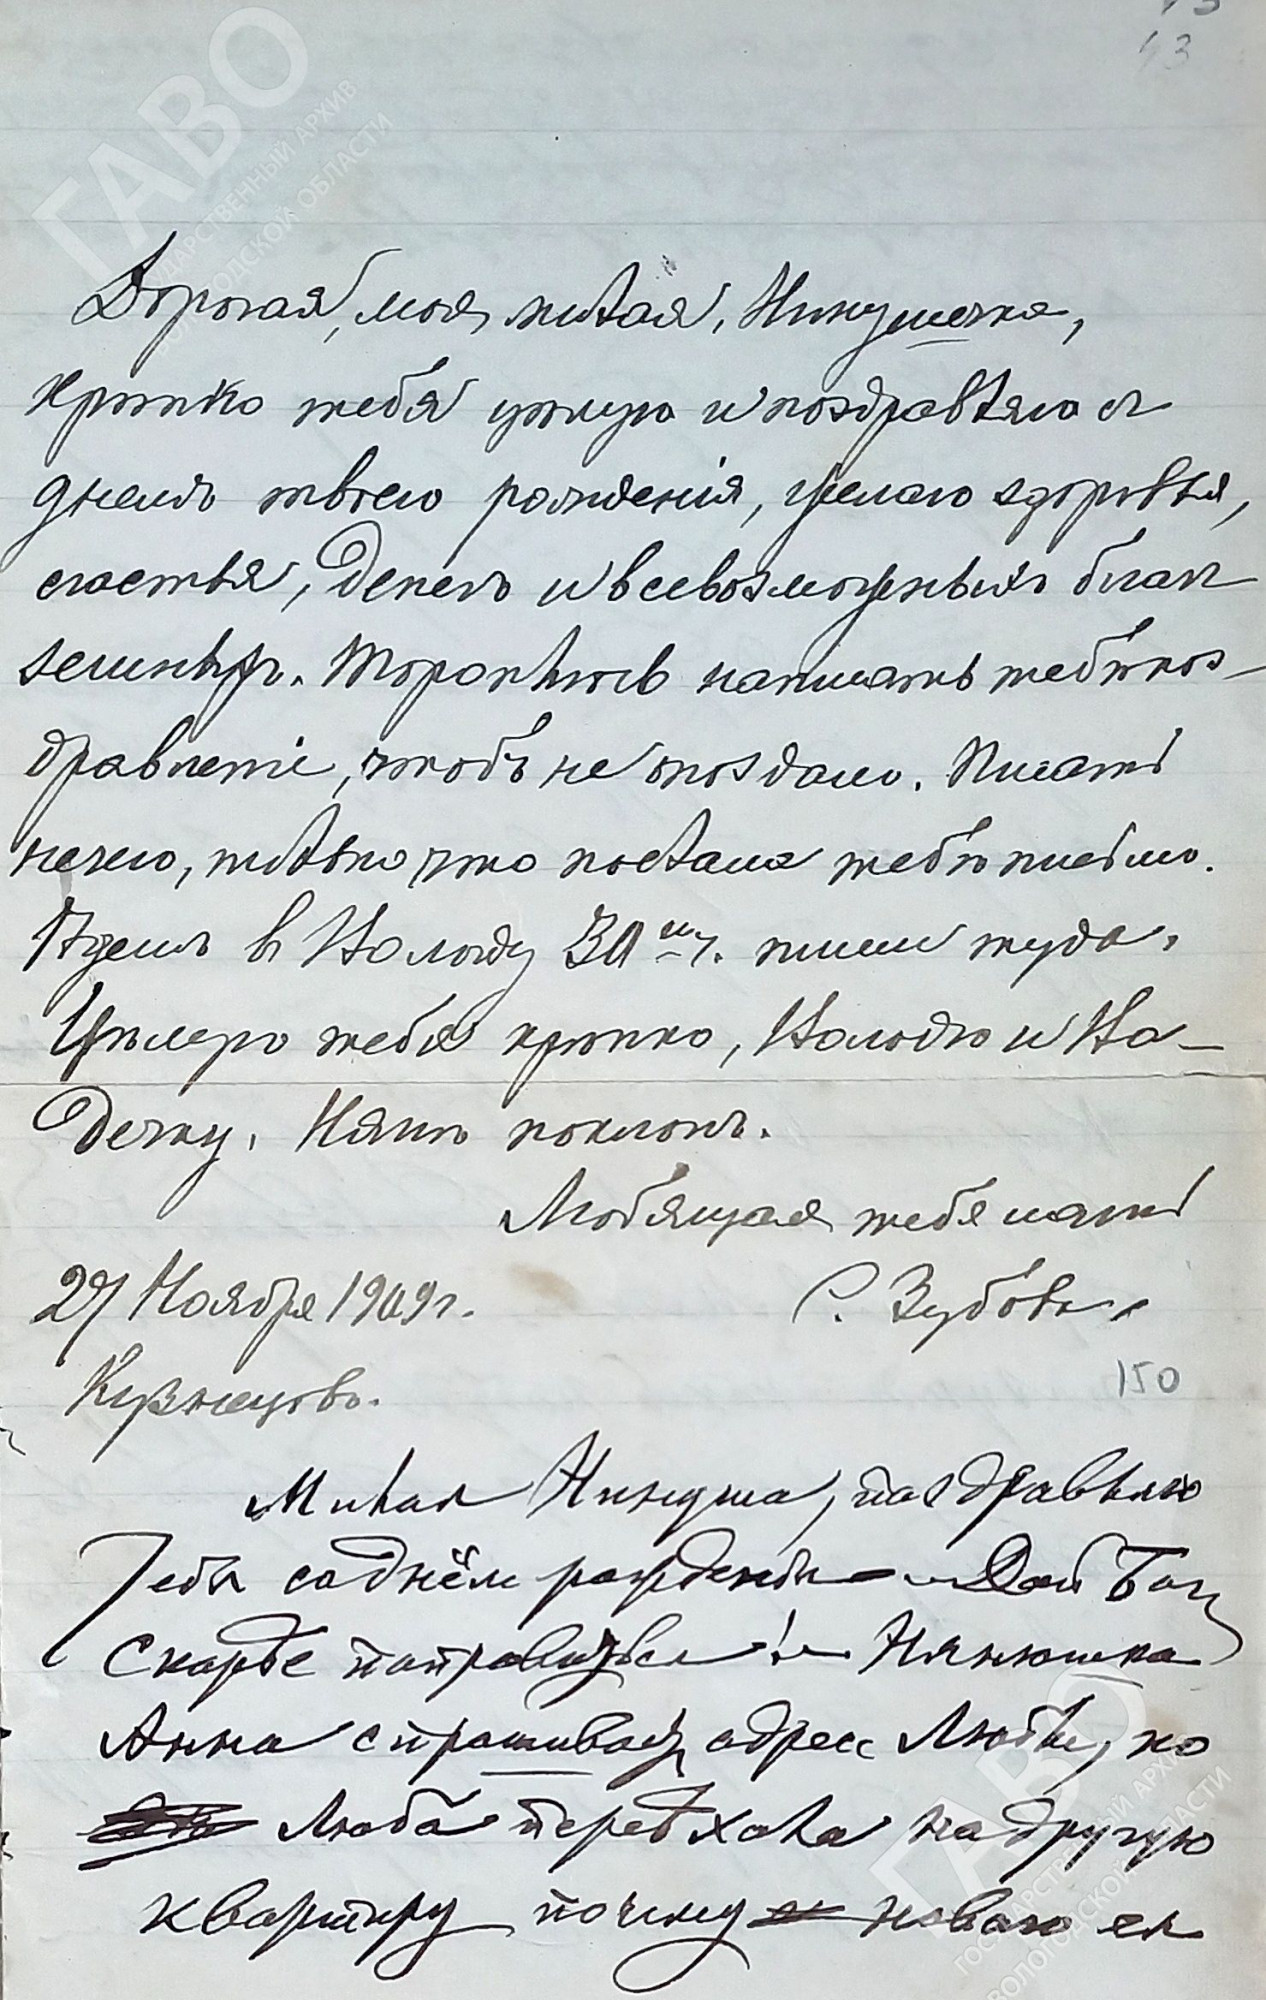 43
Дорогая, моя милая, Нинушечка,
крѣпко тебя цѣлую и поздравляю съ
днемъ твоего рожденія, желаю здоровья,
счастья, денегъ и всевозможныхъ благ
земныхъ. Тороплюсь написать тебѣ поз-
дравленіе, чтобъ не опоздало. Писать
нечего, только что послала тебѣ письмо.
Ѣдемъ в Вологду 30го ч. пиши туда.
Цѣлую тебя крѣпко, Володю и На-
дечку. Нянѣ поклонъ.
Любящая тебя мать
27 Ноября 1909 г. С. Зубова.
Кузнецово. 150
Милая Нинуша, поздравляю
Тебя со днём рожденья – Дай Бог
скорѣе поправиться! – Нянюшка
Анна спрашивает адрес Любы, но
Люба переѣхала на другую
квартиру, почему новаго ея
ГАВО
ГОСУДАРСТВЕННЫЙ АРХИВ
ВОЛОГОДСКОЙ ОБЛАСТИ
ГАВО
ГОСУДАРСТВЕННЫЙ АРХИВ
ВОЛОГОДСКОЙ ОБЛАСТИ